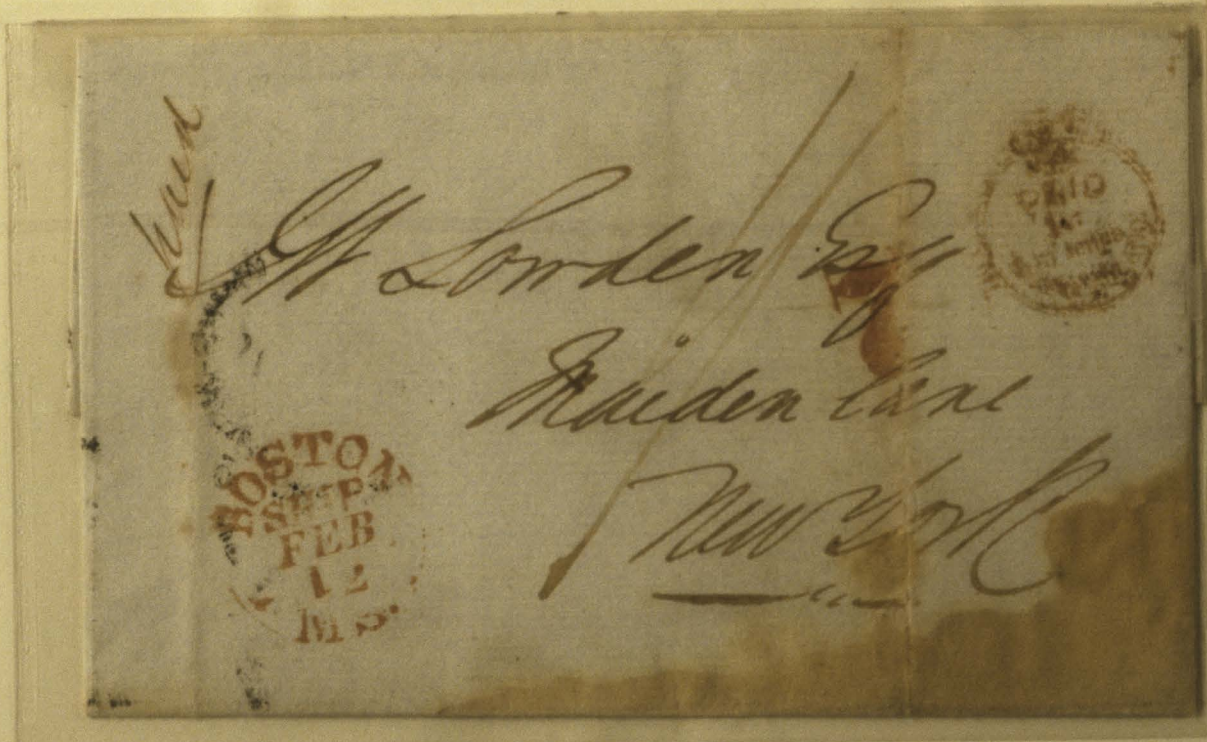 Paid
W Lowden Esq
Maiden Lane
New York
PAID
BOSTON
SHIP
FEB
12
MS.